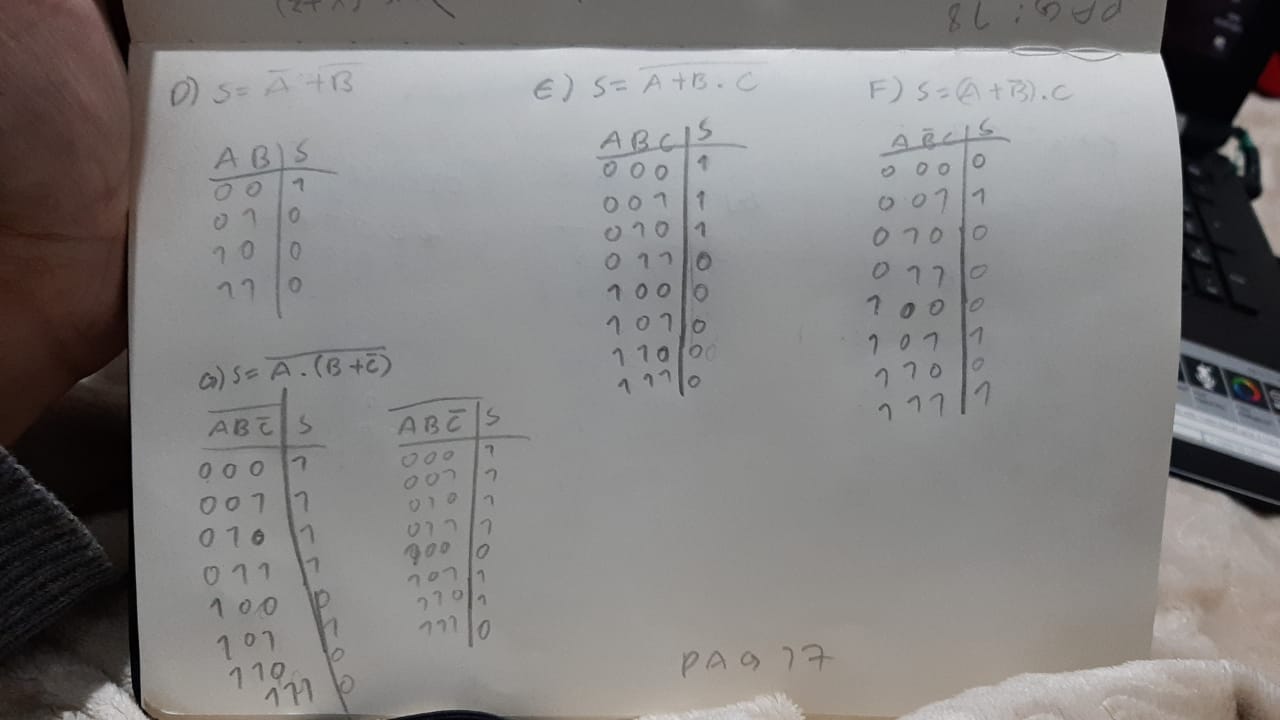 PAG: 18
D) S= A̅ + B̅
A B S
0 0 1
0 1 0
1 0 0
1 1 0
E) S= A̅+̅B̅ ̅.̅ ̅C̅
A B C S
0 0 0 1
0 0 1 1
0 1 0 1
0 1 1 0
1 0 0 0
1 0 1 0
1 1 0 0
1 1 1 0
F) S=(A+B̅).C
A B̅ C S
0 0 0 0
0 0 1 1
0 1 0 0
0 1 1 0
1 0 0 0
1 0 1 1
1 1 0 0
1 1 1 1
G) S= A̅ ̅.̅ ̅(̅B̅+̅C̅)̅
A B C̅ S
0 0 0 1
0 0 1 1
0 1 0 1
0 1 1 1
1 0 0 0
1 0 1 1
1 1 0 0
1 1 1 0
A B C̅ S
0 0 0 1
0 0 1 1
0 1 0 1
0 1 1 1
1 0 0 0
1 0 1 1
1 1 0 1
1 1 1 0
PAG 17